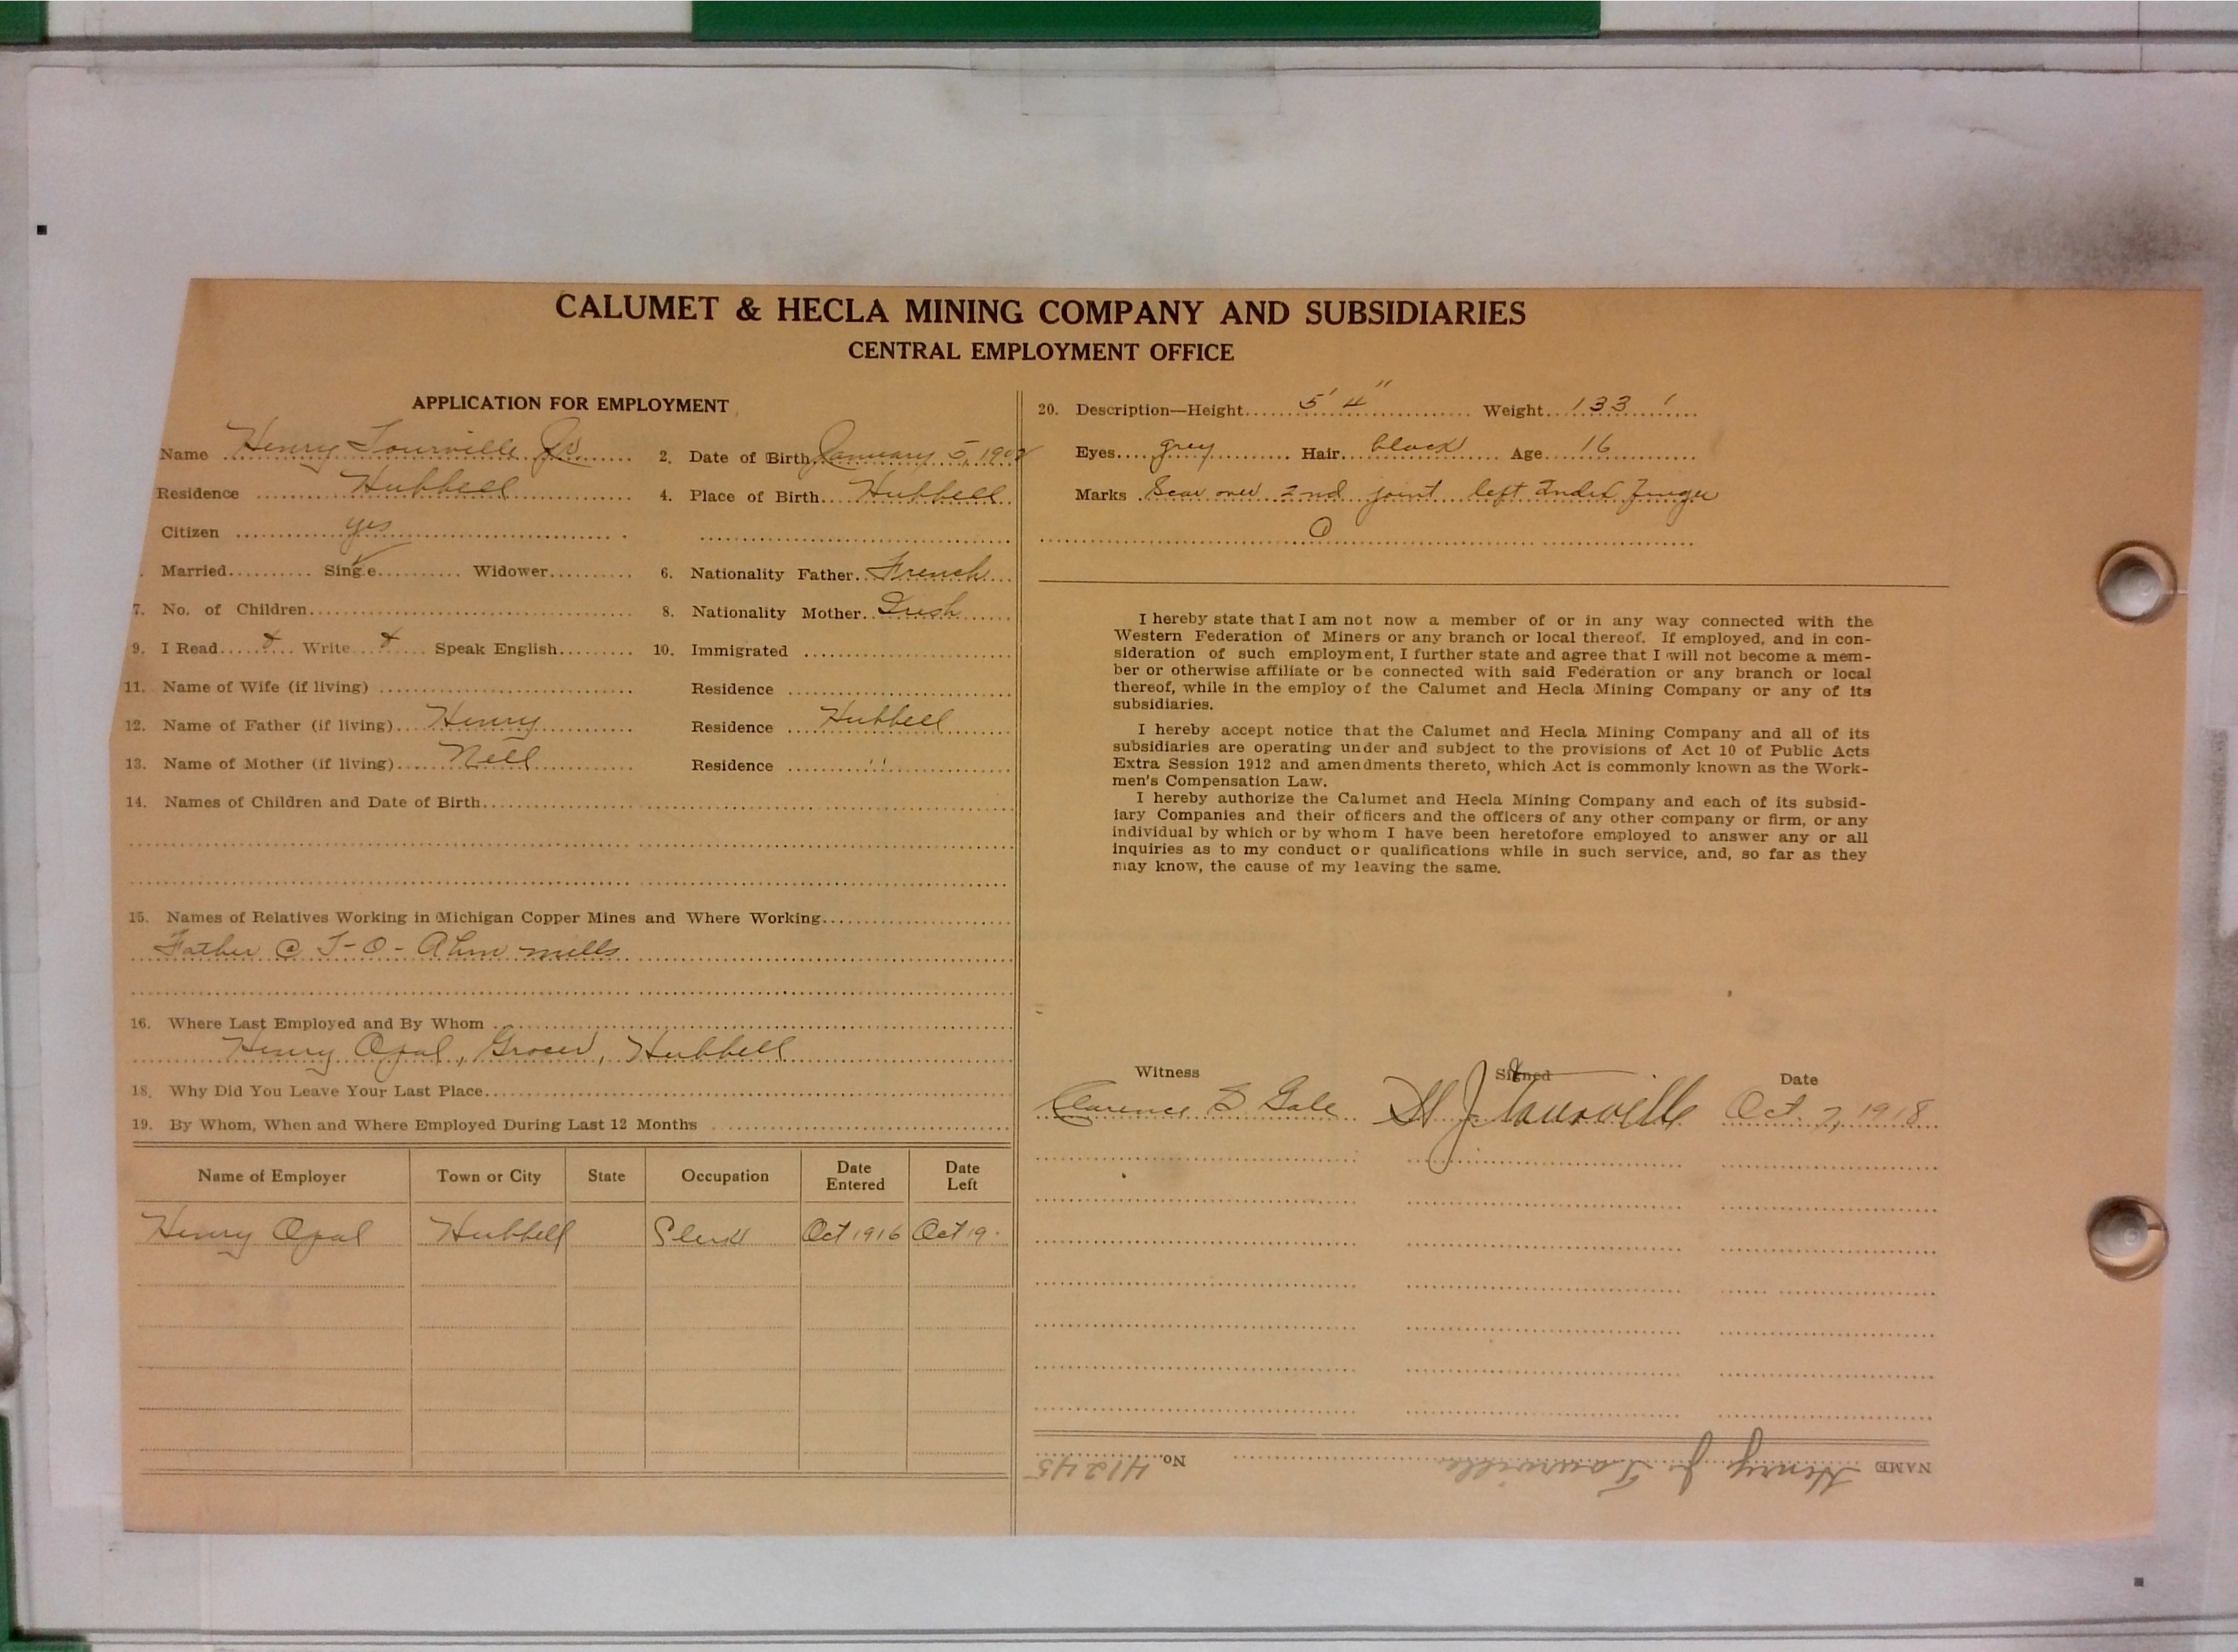 CALUMET & HECLA MINING COMPANY AND SUBSIDIARIES
CENTRAL EMPLOYMENT OFFICE
APPLICATION FOR EMPLOYMENT
Name Henry Tourville Jr. 2. Date of Birth January 5, 1902
Residence Hubbell 4. Place of Birth Hubbell
Citizen yes
Married Single Widower 6. Nationality Father French
7. No. of Children 8. Nationality Mother Irish
9. I Read Write Speak English 10. Immigrated
11. Name of Wife (if living) Residence
12. Name of Father (if living) Henry Residence Hubbell
13. Name of Mother (if living) Nell Residence "
14. Names of Children and Date of Birth
15. Names of Relatives Working in Michigan Copper Mines and Where Working
Father @ T-O- Ahm mills
16. Where Last Employed and By Whom
Henry Opal, Grocer, Hubbell
18. Why Did You Leave Your Last Place
19. By Whom, When and Where Employed During Last 12 Months
Name of Employer Town or City State Occupation Date Entered Date Left
Henry Opal Hubbell Clerk Oct 1916 Oct 19
20. Description—Height 5' 4" Weight 133
Eyes grey Hair black Age 16
Marks Scar over 2nd joint left Index finger
I hereby state that I am not now a member of or in any way connected with the
Western Federation of Miners or any branch or local thereof. If employed, and in con-
sideration of such employment, I further state and agree that I will not become a mem-
ber or otherwise affiliate or be connected with said Federation or any branch or local
thereof, while in the employ of the Calumet and Hecla Mining Company or any of its
subsidiaries.
I hereby accept notice that the Calumet and Hecla Mining Company and all of its
subsidiaries are operating under and subject to the provisions of Act 10 of Public Acts
Extra Session 1912 and amendments thereto, which Act is commonly known as the Work-
men's Compensation Law.
I hereby authorize the Calumet and Hecla Mining Company and each of its subsid-
iary Companies and their officers and the officers of any other company or firm, or any
individual by which or by whom I have been heretofore employed to answer any or all
inquiries as to my conduct or qualifications while in such service, and, so far as they
may know, the cause of my leaving the same.
Witness Signed Date
Clarence S Gale H J Tourville Oct. 7, 1918
NAME Henry J. Tourville No. 41245